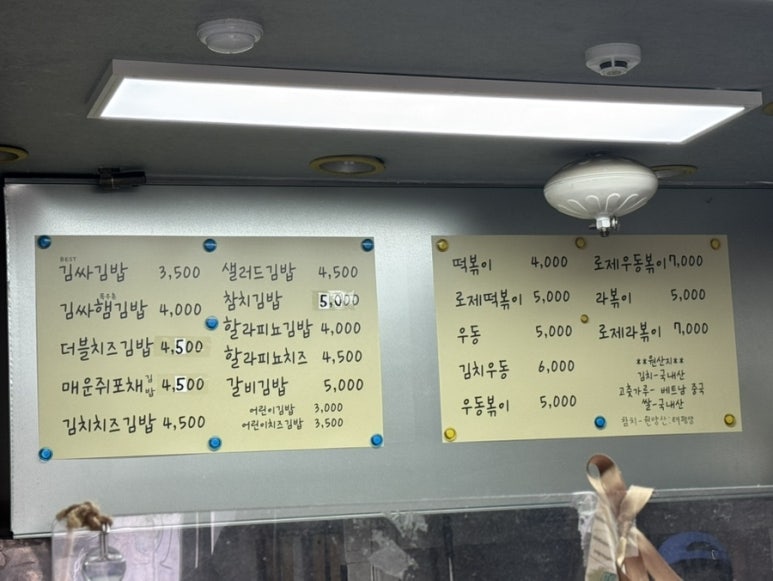 BEST
김싸김밥 3,500
폭수종
김싸햄김밥 4,000
더블치즈김밥 4,500
매운쥐포채김밥 4,500
김치치즈김밥 4,500
샐러드김밥 4,500
참치김밥 5,000
할라피뇨김밥 4,000
할라피뇨치즈 4,500
갈비김밥 5,000
어린이김밥 3,000
어린이치즈김밥 3,500
떡볶이 4,000
로제떡볶이 5,000
우동 5,000
김치우동 6,000
우동볶이 5,000
로제우동볶이 7,000
라볶이 5,000
로제라볶이 7,000
**원산지**
김치-국내산
고춧가루- 베트남 중국
쌀-국내산
참치-원양산:태평양